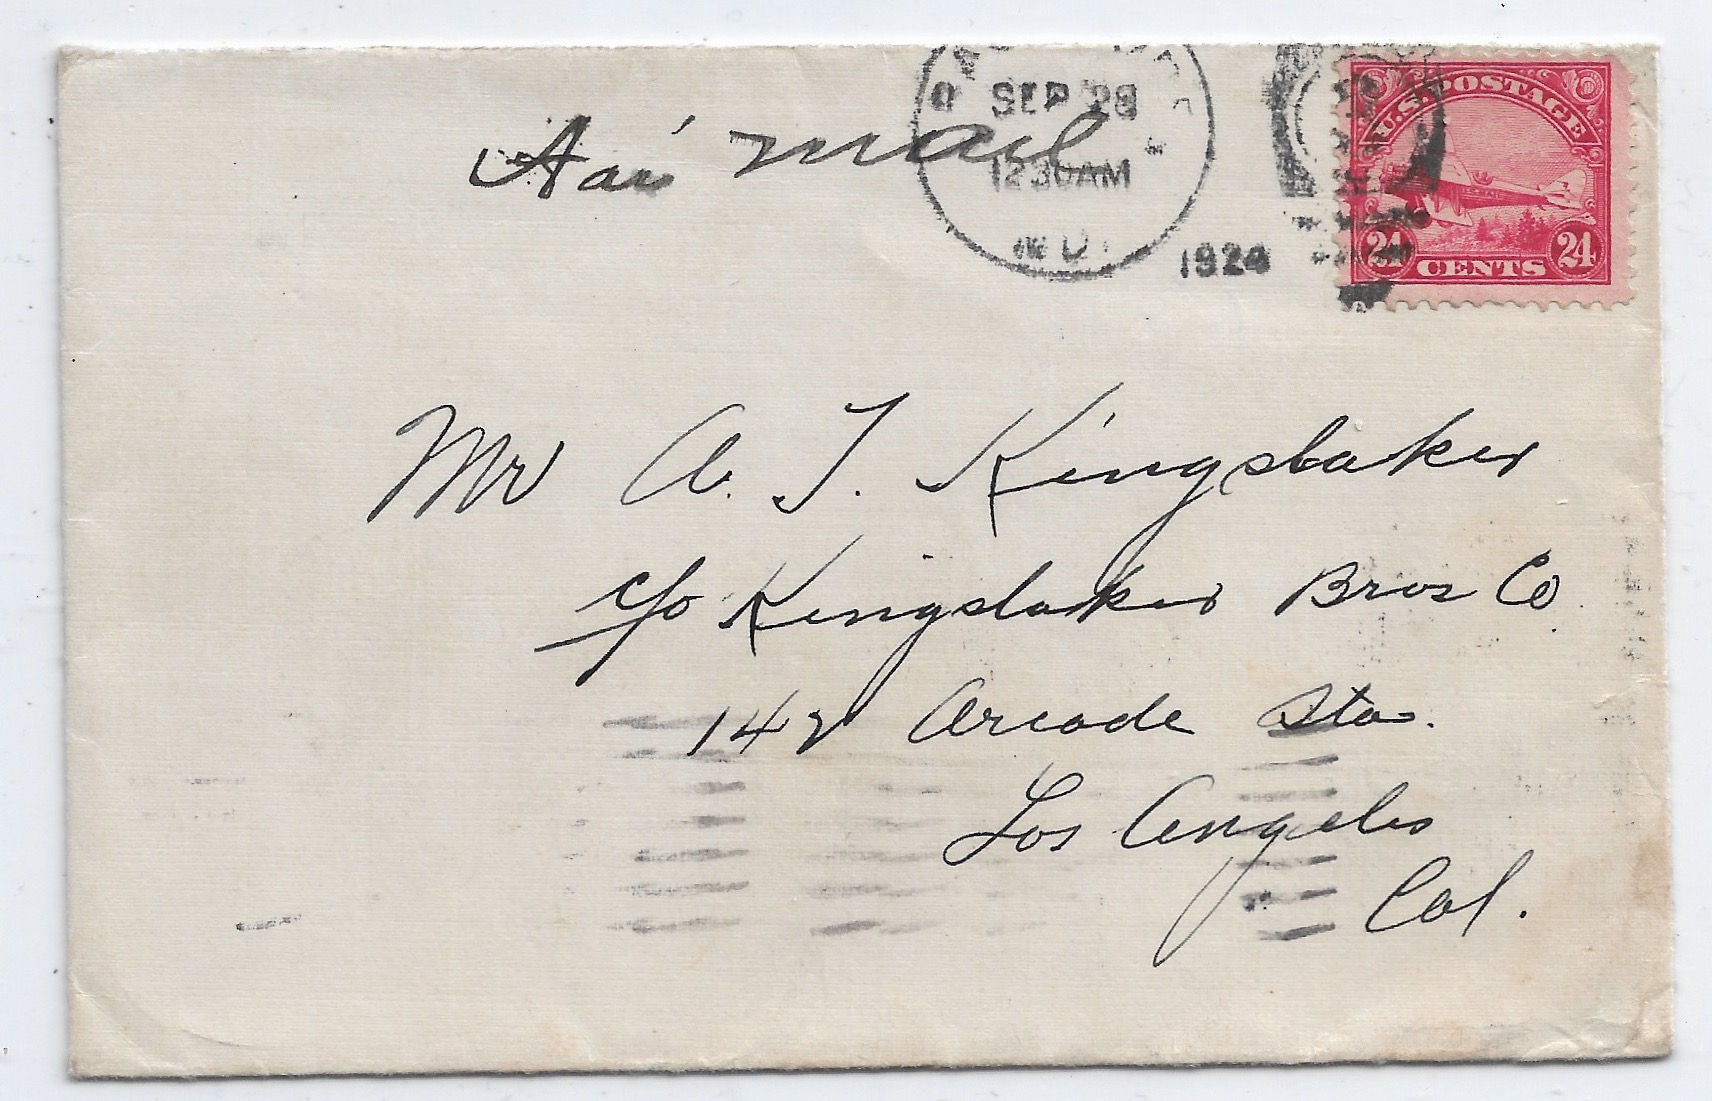 SEP 28
12 30 AM
IND.
1924
U.S. POSTAGE
24 CENTS 24
Air mail
Mr A. J. Kingsbaker
c/o Kingsbaker Bros Co.
142 Arcade Sta.
Los Angeles
Cal.